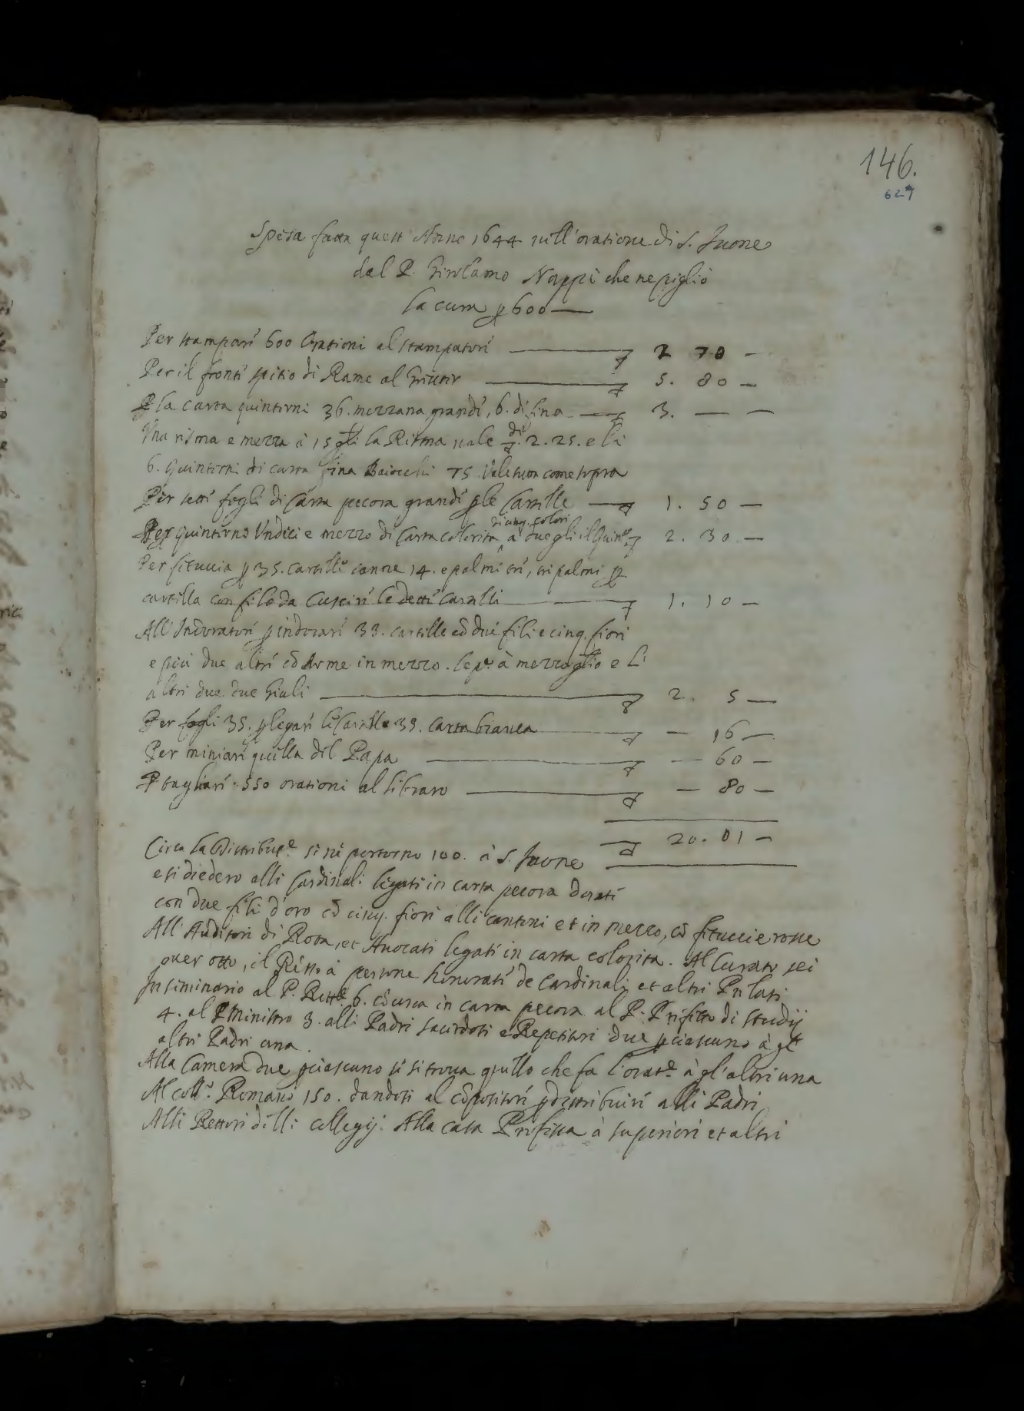 146.
629
Spesa fatta quest'Anno 1644 nell'oratione di S. Iuone
dal P. Girolamo Nappi che ne pigliò
la cura p 600
Per stampare 600 Orationi al stampatore 2 70
Per il fronte spitio di Rame al 5. 80
P la carta quinterni 36. mezzana grande, 6. di fina 3.
Una risma e mezza à 15 gli la Risma uale di 2.25. e li
6. Quinterni di carta fina Baiocchi 75. come sopra
Per sette fogli di Carta pecora grandi p le Cartelle 1. 50
Per quinterno Undici e mezzo di Carta colorita di cinq. colori à due gli il Quinto 2. 30
Per fituccia p 35. cartelle canne 14. e palmi tre, tre palmi p
cartella con filo da Cuscire le dette Cartelle 1. 10
All'Indoratore p indorare 33. cartelle cō due fili e cinq. fiori
e più due altre cō Arme in mezzo. le pe à mezzo glio e li
altri due due Giuli 2. 5
Per fogli 35. p legare le Cartelle 33. carta bianca 16
Per miniare quella del Papa 60
P tagliare 550 orationi al libraro 80
20. 01
Circa la Distribune si ne portorno 100. à S. Iuone
e si diedero alli Cardinali legati in carta pecora dorati
con due fili d'oro cō cinq. fiori alli cantoni et in mezzo, cō fituccie rosse
All'Auditori di Rota, et Auocati legati in carta colorita. Al Curato sei
ouer otto, il Resto à persone honorate de Cardinali et altri Prelati
In seminario al P. Rettre 6. cō una in carta pecora al P. Prefetto di Studij
4. al P Ministro 3. alli Padri Sacerdoti e Repetitori due p ciascuno à gli
altri Padri una.
Alla Camera due p ciascuno se si troua quello che fa l'oratne à gl'altri una
Al collo Romano 150. dandosi al cōpositore p distribuire alli Padri
Alli Rettori delli collegij. Alla casa Professa à superiori et altri